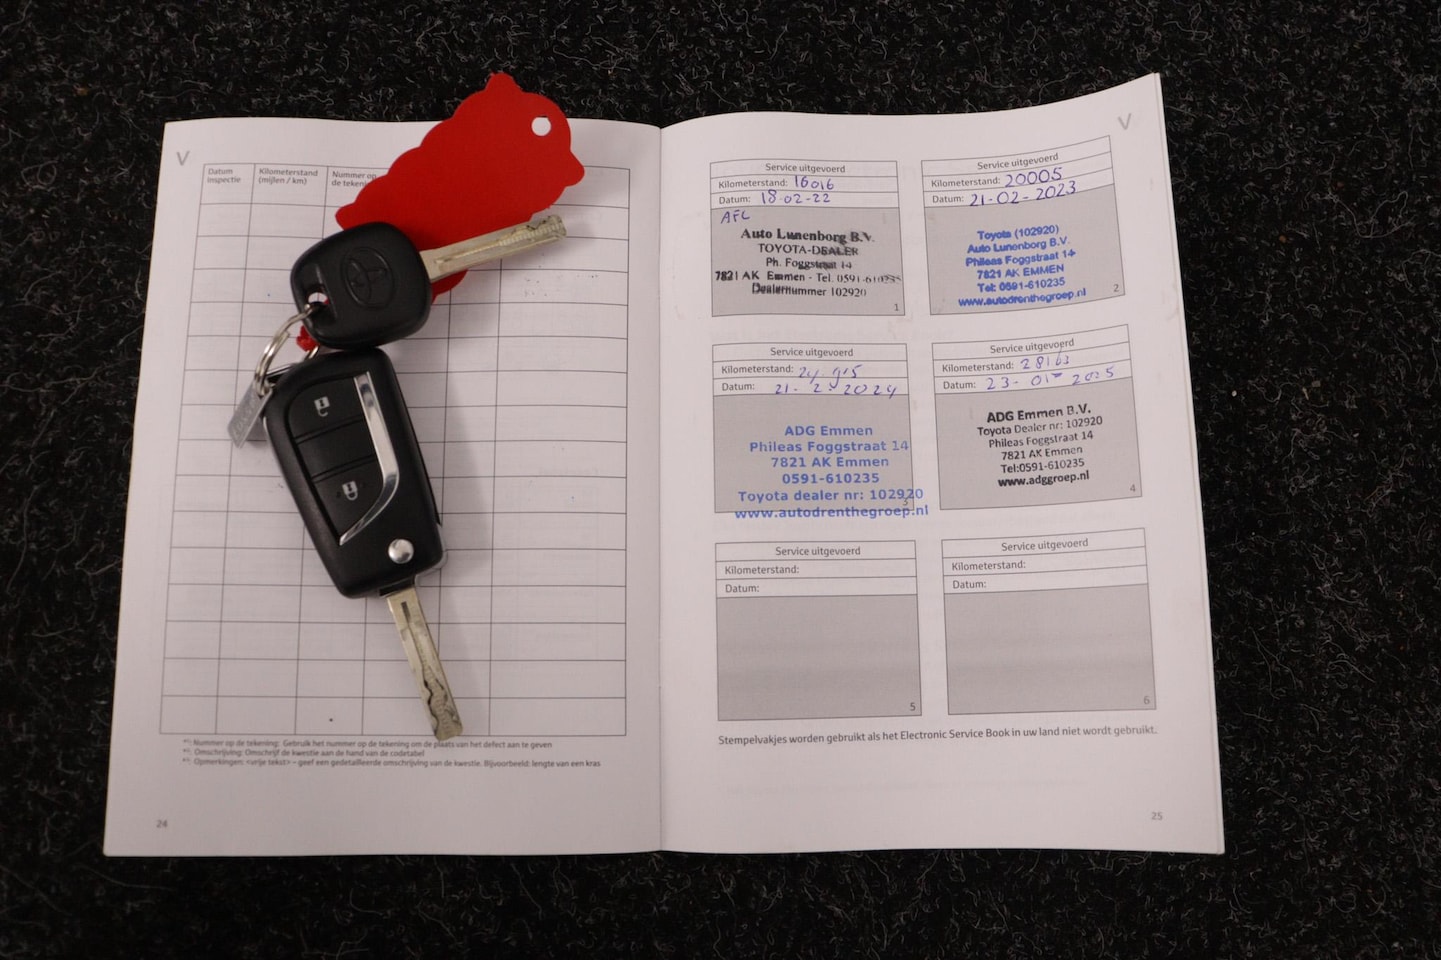 V
Datum inspectie
Kilometerstand (mijlen / km)
Nummer op de tekening
*¹: Nummer op de tekening: Gebruik het nummer op de tekening om de plaats van het defect aan te geven
*²: Omschrijving: Omschrijf de kwestie aan de hand van de codetabel
*³: Opmerkingen: <vrije tekst> – geef een gedetailleerde omschrijving van de kwestie. Bijvoorbeeld: lengte van een kras
24
V
Service uitgevoerd
Kilometerstand: 16016
Datum: 18-02-22
AFL
Auto Lunenborg B.V.
TOYOTA-DEALER
Ph. Foggstraat 14
7821 AK Emmen - Tel. 0591-610235
Dealernummer 102920
1
Service uitgevoerd
Kilometerstand: 20005
Datum: 21-02-2023
Toyota (102920)
Auto Lunenborg B.V.
Phileas Foggstraat 14
7821 AK EMMEN
Tel: 0591-610235
www.autodrenthegroep.nl
2
Service uitgevoerd
Kilometerstand: 24.915
Datum: 21-2-2024
ADG Emmen
Phileas Foggstraat 14
7821 AK Emmen
0591-610235
Toyota dealer nr: 102920
www.autodrenthegroep.nl
3
Service uitgevoerd
Kilometerstand: 28163
Datum: 23-01-2025
ADG Emmen B.V.
Toyota Dealer nr: 102920
Phileas Foggstraat 14
7821 AK Emmen
Tel:0591-610235
www.adggroep.nl
4
Service uitgevoerd
Kilometerstand:
Datum:
5
Service uitgevoerd
Kilometerstand:
Datum:
6
Stempelvakjes worden gebruikt als het Electronic Service Book in uw land niet wordt gebruikt.
25